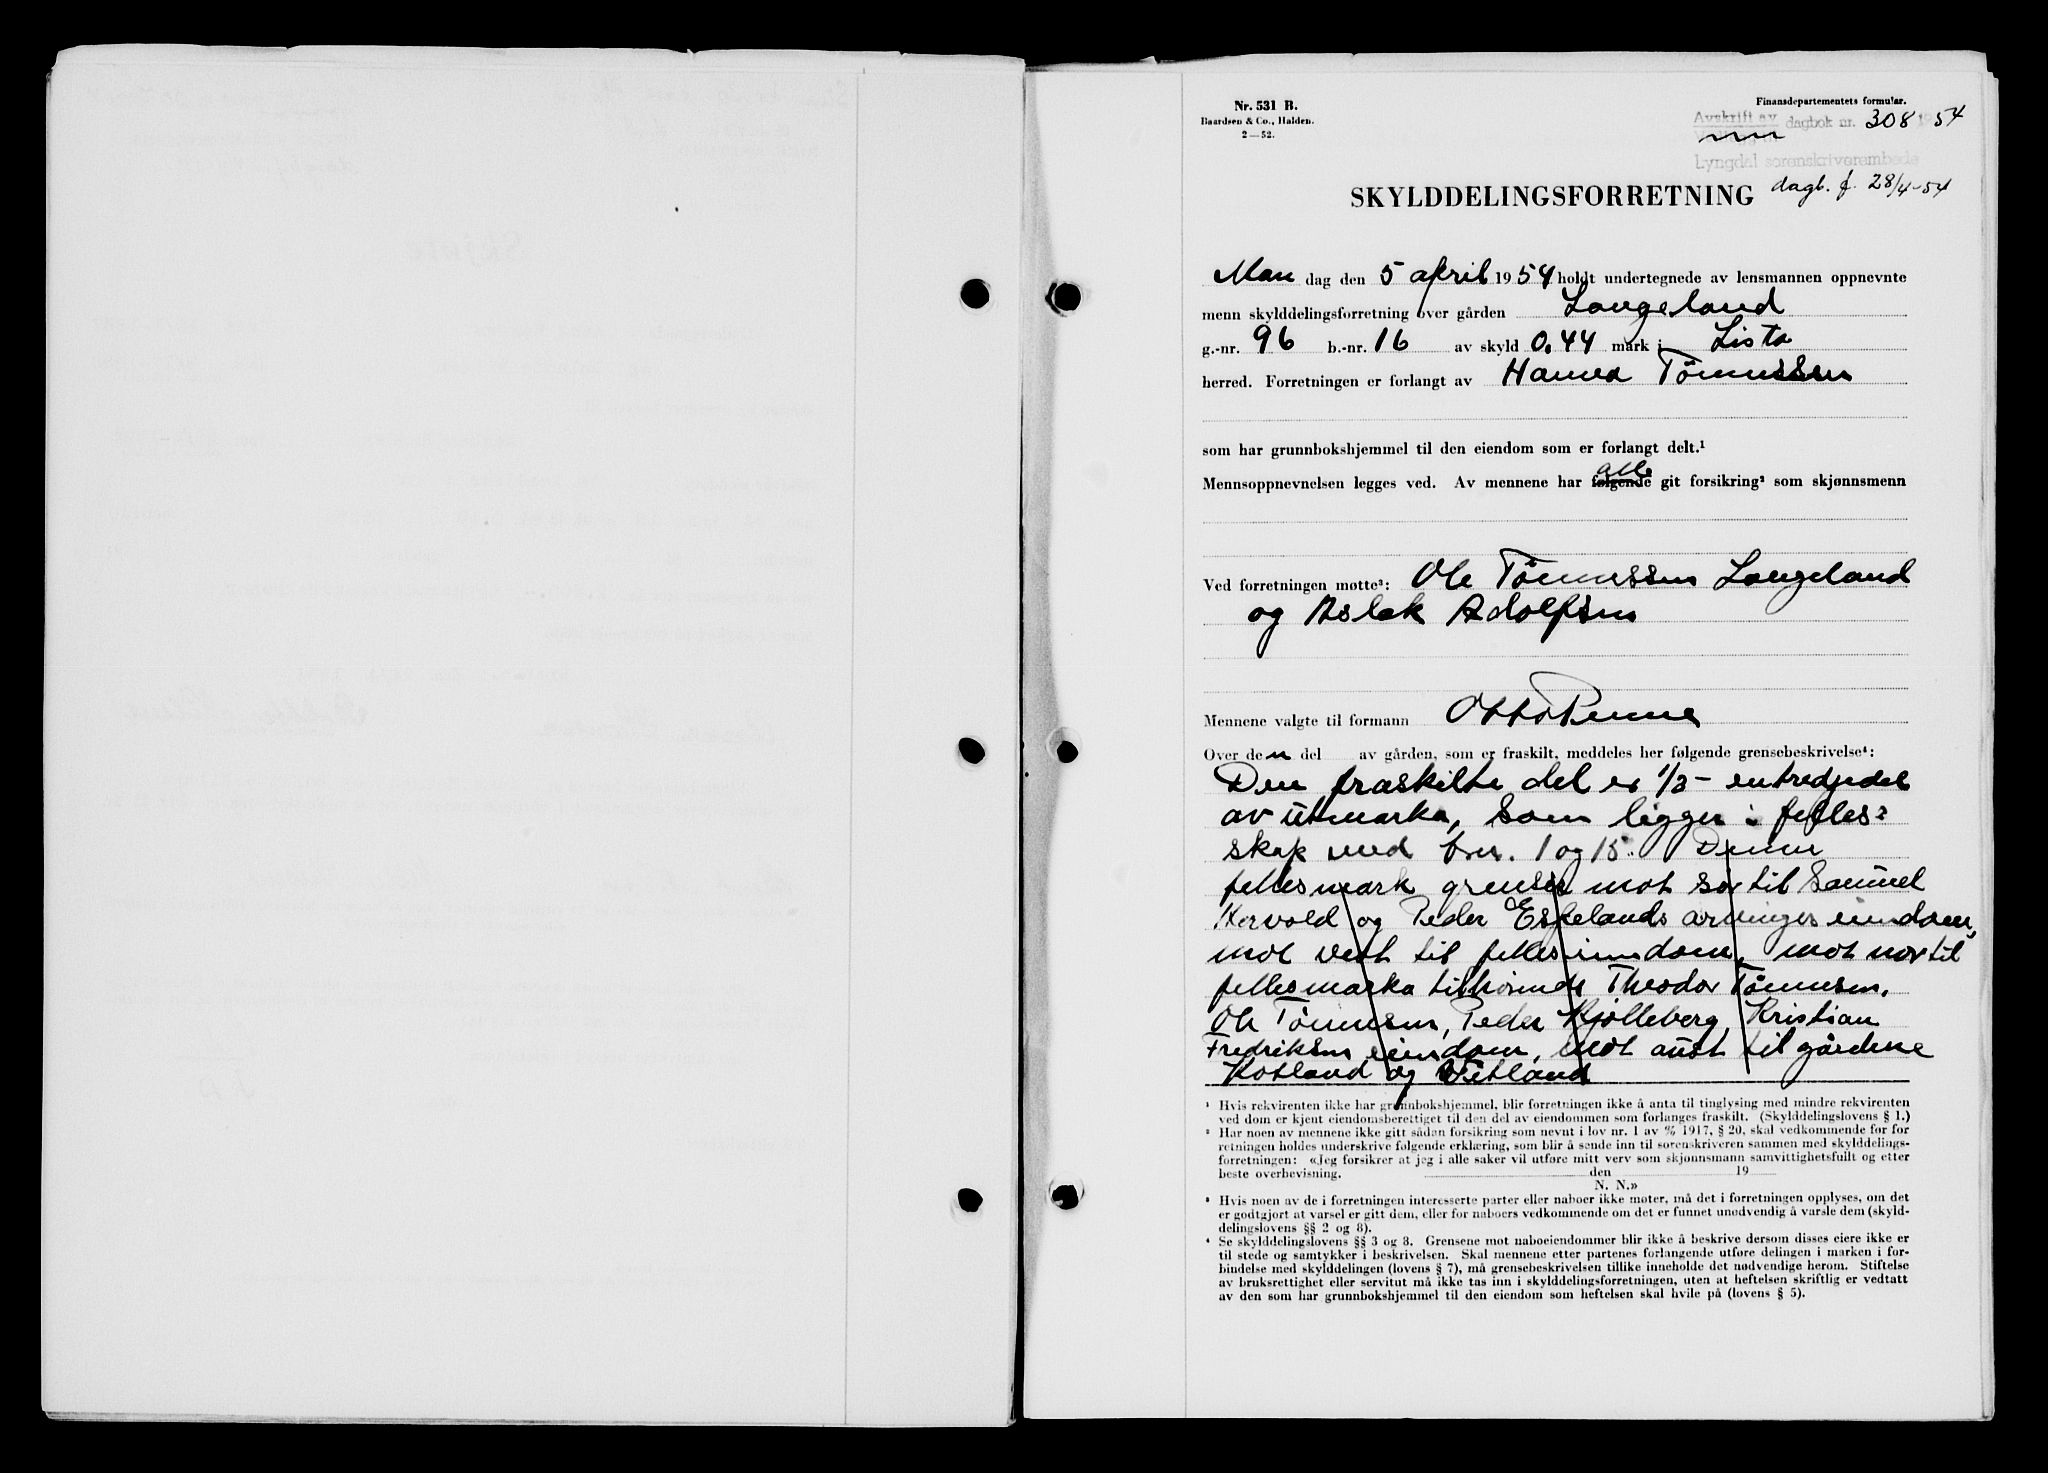 Nr. 531 B.
Baardsen & Co., Halden.
2—52.
Finansdepartementets formular.
Avskrift av
dagbok nr. 308 19 54
Lyngdal sorenskriverembede
dagb. f. 28/4-54
SKYLDDELINGSFORRETNING
Man dag den 5 april 1954 holdt undertegnede av lensmannen oppnevnte
menn skylddelingsforretning over gården Langeland
g.-nr. 96 b.-nr. 16 av skyld 0.44 mark i Lista
herred. Forretningen er forlangt av Hanna Tönnessen
som har grunnbokshjemmel til den eiendom som er forlangt delt.¹
alle
Mennsoppnevnelsen legges ved. Av mennene har følgende git forsikring² som skjønnsmenn
Ved forretningen møtte³: Ole Tönnessen Langeland
og Aslak Adolfsen
Mennene valgte til formann Otto Penne
Over den del av gården, som er fraskilt, meddeles her følgende grensebeskrivelse⁴:
Den fraskilte del er 1/3 - entredjedel
av utmarka, som ligger i felles=
skap med bnr. 1 og 15. Denne
fellesmark grenser mot sør til Samuel
Hervold og Peder Espelands arvinges eiendom,
mot vest til felleseiendom, mot nor til
fellesmarka tilhørende Theodor Tönnesen.
Ole Tönnesen, Peder Kjölleberg, Kristian
Fredriksen eiendom, mot aust til gårdene
Kotland og Vetland
¹ Hvis rekvirenten ikke har grunnbokshjemmel, blir forretningen ikke å anta til tinglysing med mindre rekvirenten
ved dom er kjent eiendomsberettiget til den del av eiendommen som forlanges fraskilt. (Skylddelingslovens § 1.)
² Har noen av mennene ikke gitt sådan forsikring som nevnt i lov nr. 1 av 1917, § 20, skal vedkommende før for
retningen holdes underskrive følgende erklæring, som blir å sende inn til sorenskriveren sammen med skylddelings-
forretningen: «Jeg forsikrer at jeg i alle saker vil utføre mitt verv som skjønnsmann samvittighetsfullt og etter
beste overbevisning. den 19
N. N.»
³ Hvis noen av de i forretningen interesserte parter eller naboer ikke møter, må det i forretningen opplyses, om det
er godtgjort at varsel er gitt dem, eller for naboers vedkommende om det er funnet unødvendig å varsle dem (skyld-
delingslovens §§ 2 og 8).
⁴ Se skylddelingslovens §§ 3 og 8. Grensene mot naboeiendommer blir ikke å beskrive dersom disses eiere ikke er
til stede og samtykker i beskrivelsen. Skal mennene etter partenes forlangende utføre delingen i marken i for-
bindelse med skylddelingen (lovens § 7), må grensebeskrivelsen tillike inneholde det nødvendige herom. Stiftelse
av bruksrettighet eller servitut må ikke tas inn i skylddelingsforretningen, uten at heftelsen skriftlig er vedtatt
av den som har grunnbokshjemmel til den eiendom som heftelsen skal hvile på (lovens § 5).